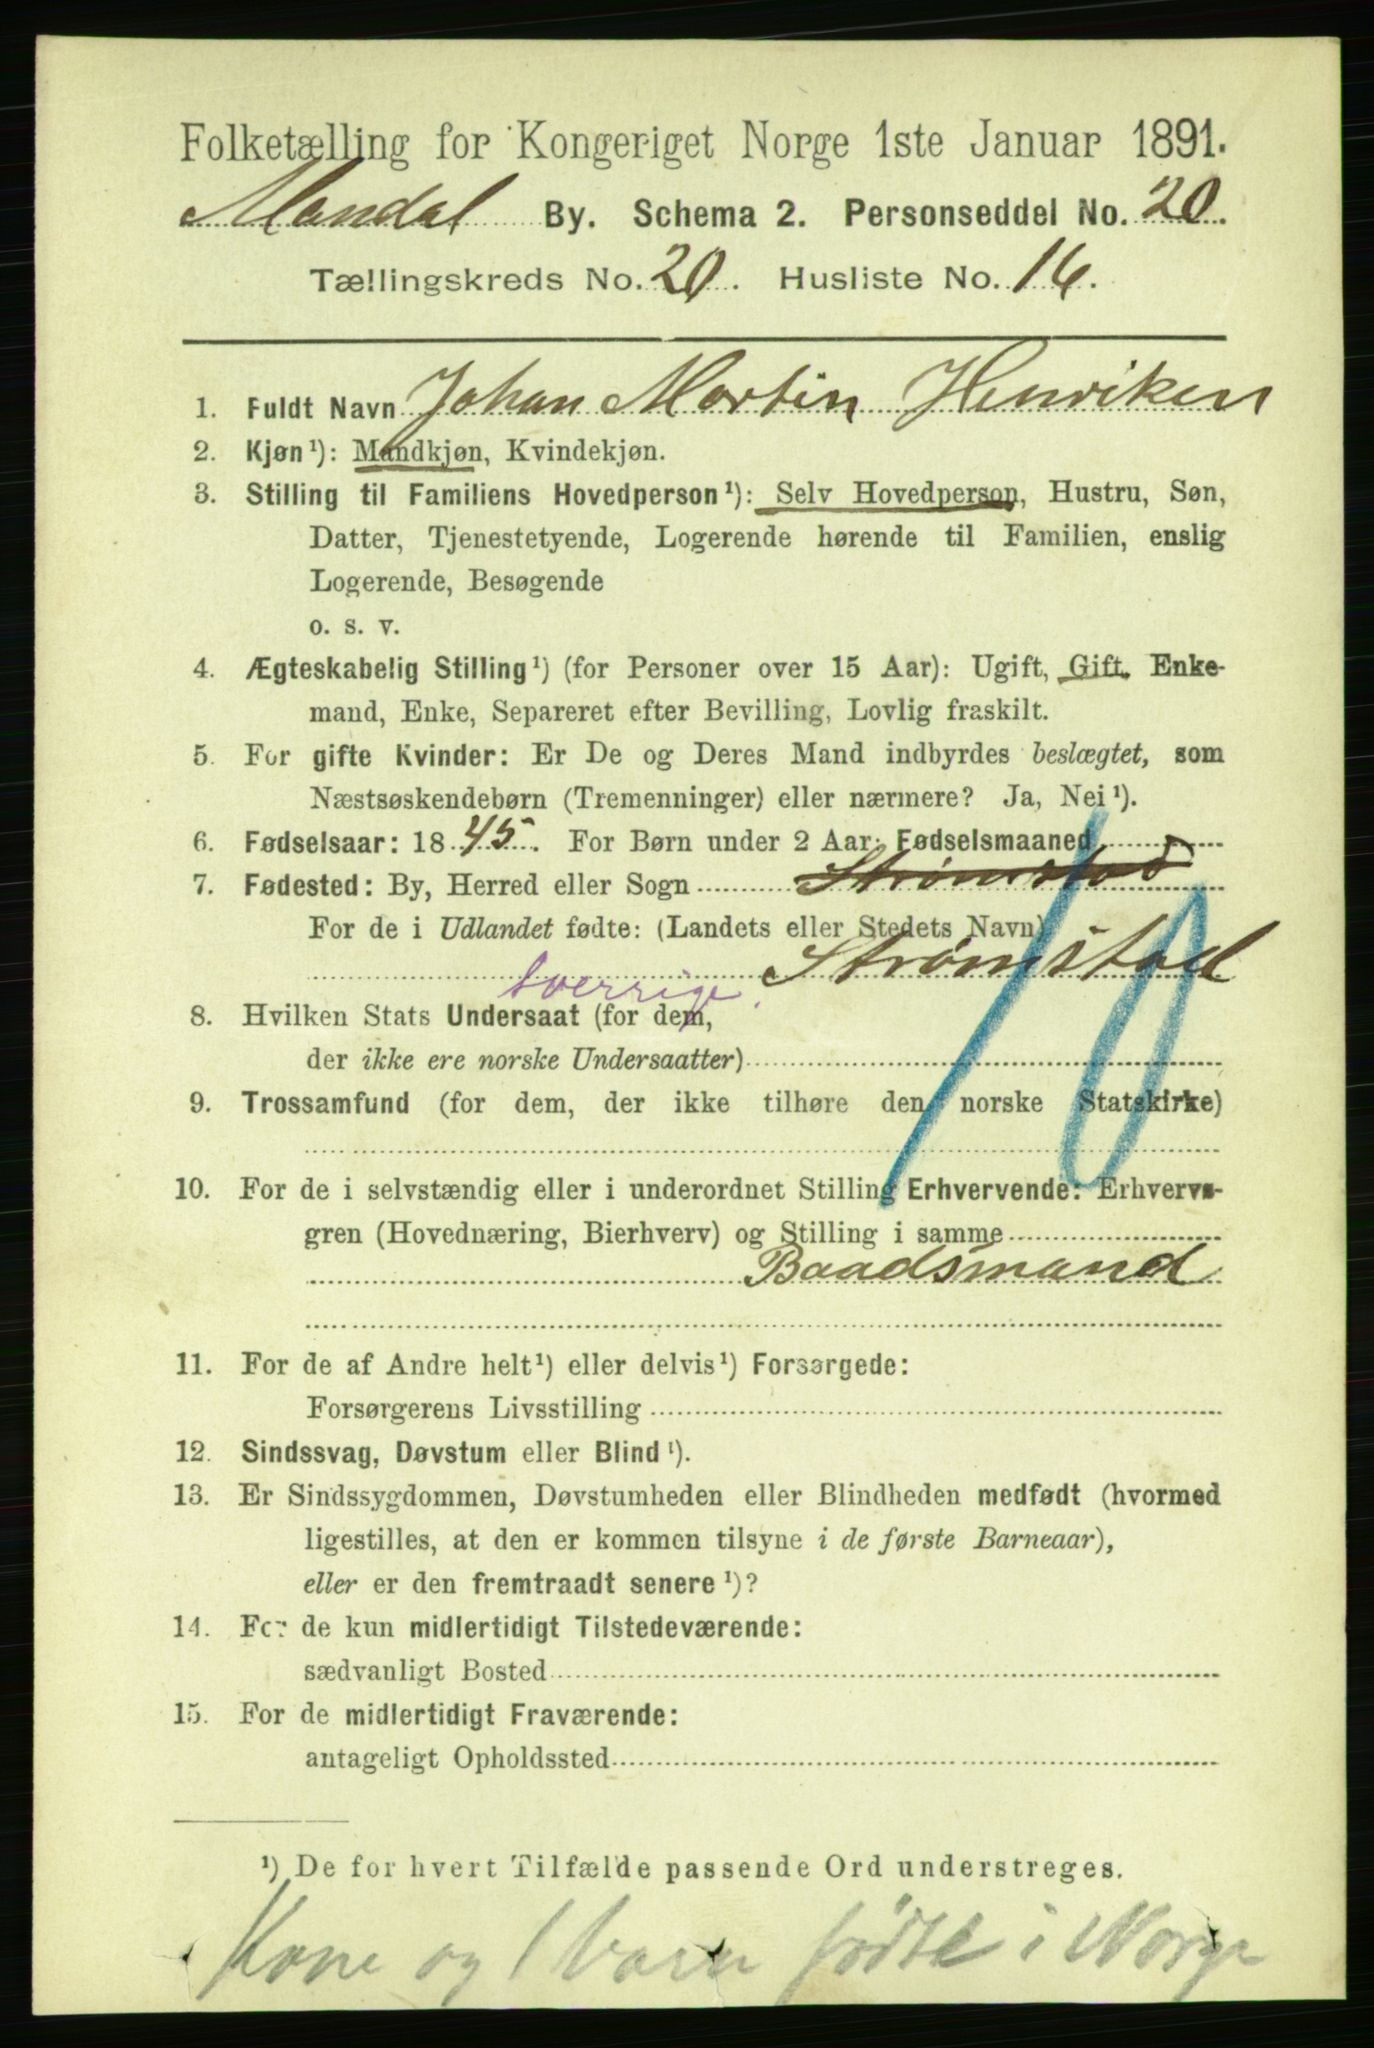 Folketælling for Kongeriget Norge 1ste Januar 1891.
Mandal By. Schema 2. Personseddel No. 20.
Tællingskreds No. 20. Husliste No. 16.
1. Fuldt Navn Johan Martin Henriksen
2. Kjøn¹): Mandkjøn, Kvindekjøn.
3. Stilling til Familiens Hovedperson¹): Selv Hovedperson, Hustru, Søn,
Datter, Tjenestetyende, Logerende hørende til Familien, enslig
Logerende, Besøgende
o. s. v.
4. Ægteskabelig Stilling¹) (for Personer over 15 Aar): Ugift, Gift, Enke-
mand, Enke, Separeret efter Bevilling, Lovlig fraskilt.
5. For gifte Kvinder: Er De og Deres Mand indbyrdes beslægtet, som
Næstsøskendebørn (Tremenninger) eller nærmere? Ja, Nei¹).
6. Fødselsaar: 1845. For Børn under 2 Aar: Fødselsmaaned
7. Fødested: By, Herred eller Sogn Strømstad
For de i Udlandet fødte: (Landets eller Stedets Navn)
Sverrige. Strømstad
8. Hvilken Stats Undersaat (for dem,
der ikke ere norske Undersaatter)
10
9. Trossamfund (for dem, der ikke tilhøre den norske Statskirke)
10. For de i selvstændig eller i underordnet Stilling Erhvervende: Erhvervs-
gren (Hovednæring, Bierhverv) og Stilling i samme
Baadsmand
11. For de af Andre helt¹) eller delvis¹) Forsørgede:
Forsørgerens Livsstilling
12. Sindssvag, Døvstum eller Blind¹).
13. Er Sindssygdommen, Døvstumheden eller Blindheden medfødt (hvormed
ligestilles, at den er kommen tilsyne i de første Barneaar),
eller er den fremtraadt senere¹)?
14. For de kun midlertidigt Tilstedeværende:
sædvanligt Bosted
15. For de midlertidigt Fraværende:
antageligt Opholdssted
¹) De for hvert Tilfælde passende Ord understreges.
Kone og 1 barn fødte i Norge